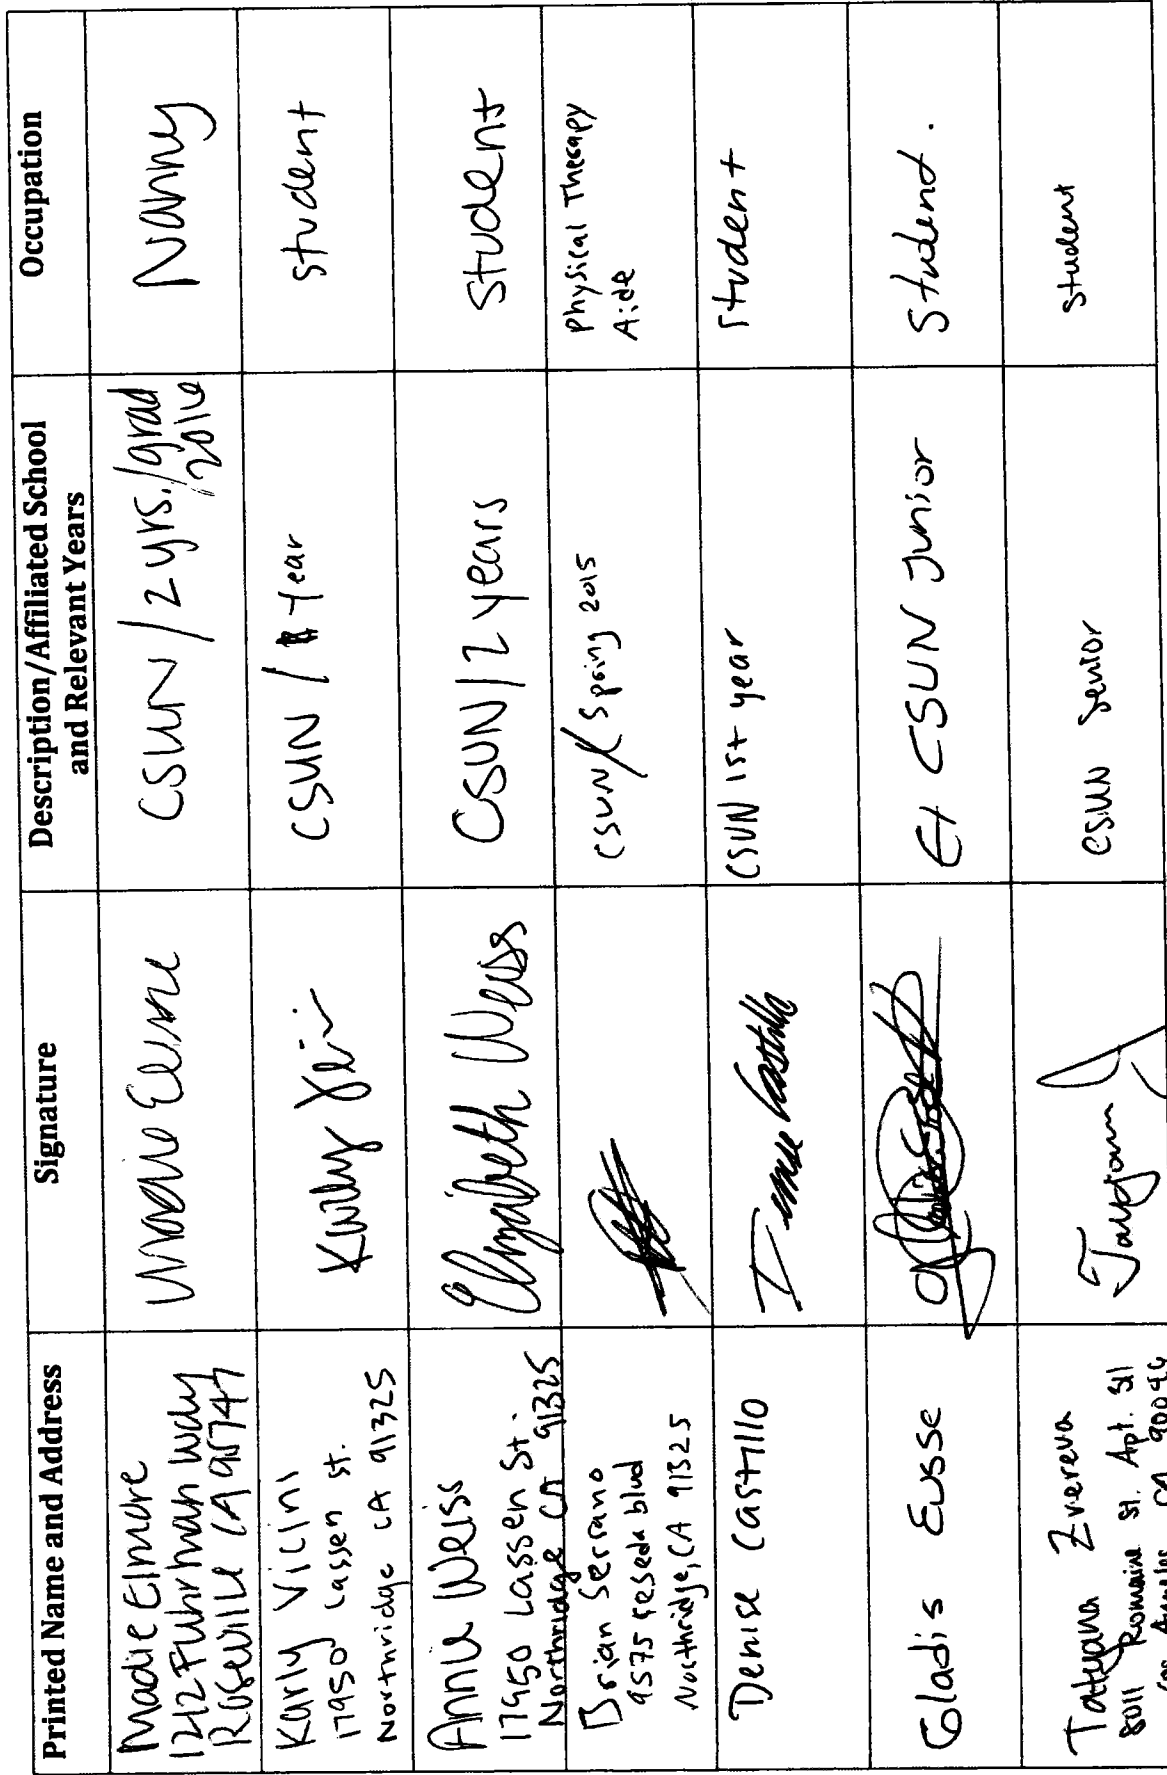 Printed Name and Address
Signature
Description/Affiliated School
and Relevant Years
Occupation
Madie Elmore
1212 Fuhrman Way
Roseville CA 95747
Madie Elmore
CSUN / 2 yrs. / grad
2016
Nanny
Karly Vicini
17950 Lassen St.
Northridge CA 91325
Karly
CSUN / Year
student
Annie Weiss
17950 Lassen St.
Northridge CA 91325
Elizabeth Weiss
CSUN / 2 years
Student
Brian Serrano
9575 reseda blvd
Northridge, CA 91325
CSUN / Spring 2015
Physical Therapy
Aide
Denise Castillo
Denise Castillo
CSUN 1st year
student
Gladis Eusse
CSUN Junior
Student.
Tatyana Zvereva
8011 Romaine St. Apt. 311
Los Angeles CA 90046
CSUN senior
student